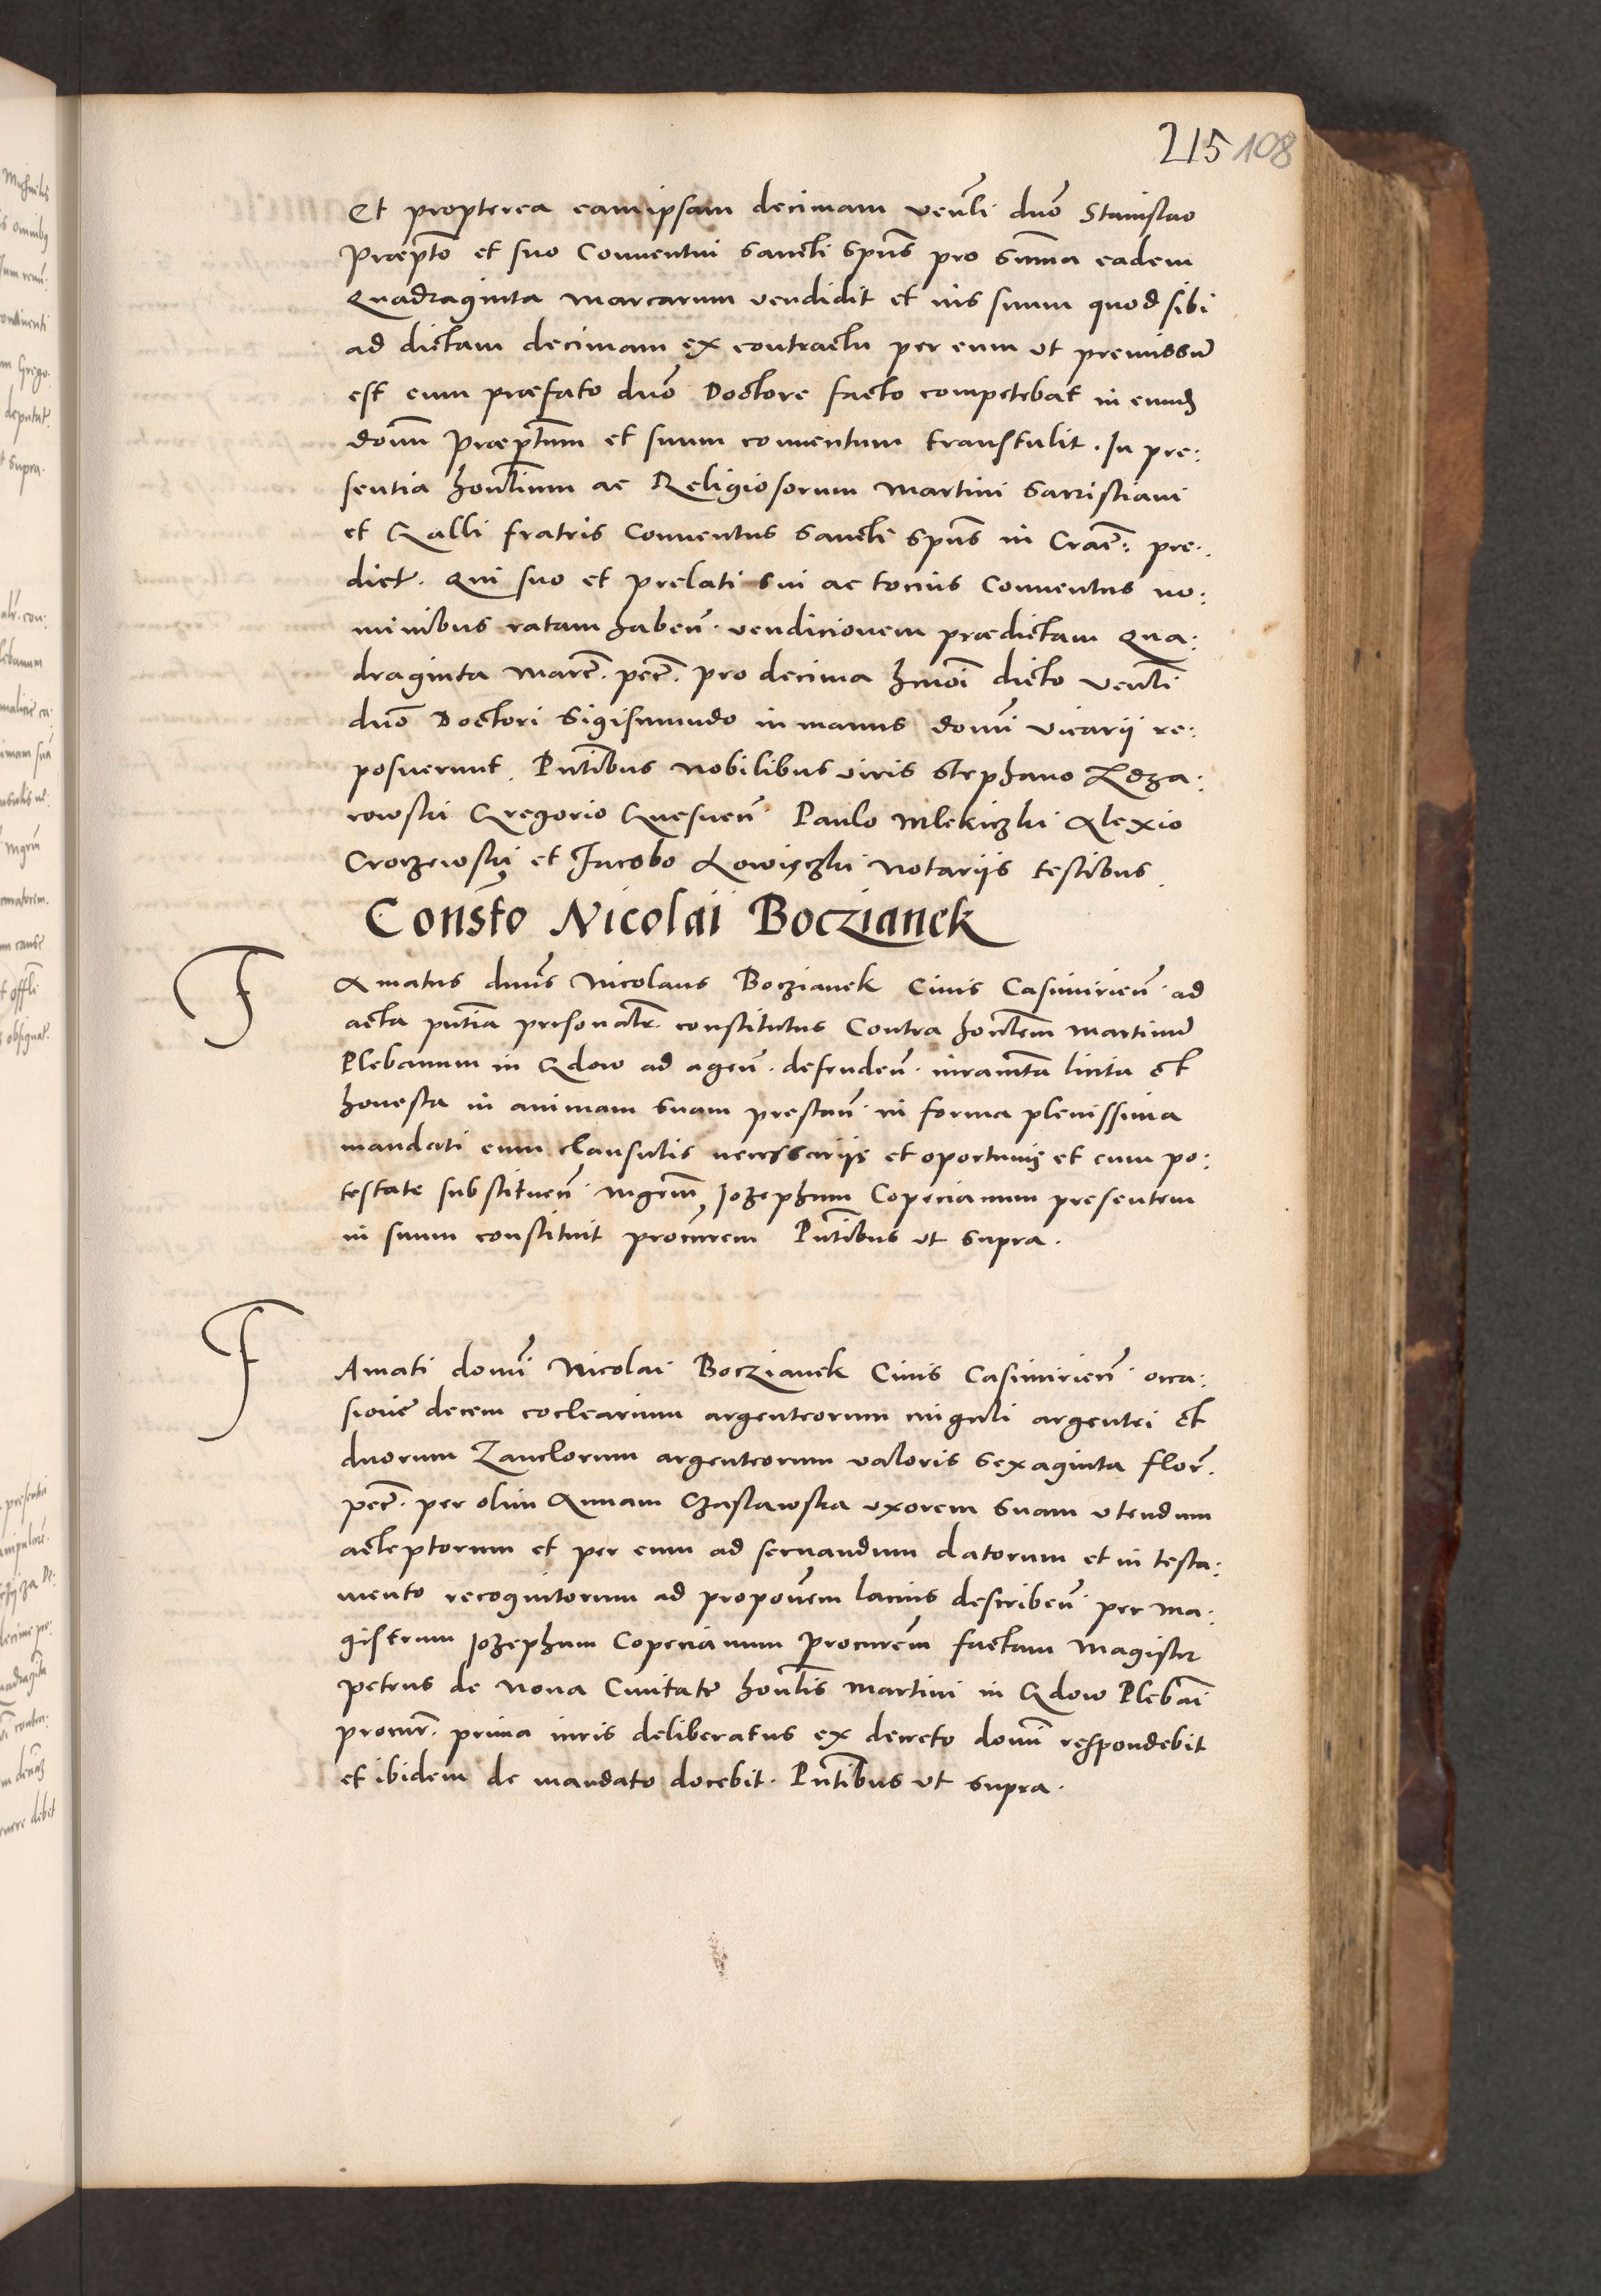 215 108
Et propterea eam ipsam decimam veñli dño Stanislao
Præpto et suo Conventui sancti spũs pro sũma eadem
Quadraginta marcarum vendidit et ius suum quod sibi
ad dictam decimam ex contractu per eum ut premissũ
est cum præfato dño Doctore facto competebat in eund
domĩ Præptum et suum conventum transtulit. In pre:
sentia hoñlium ac Religiosorum Martini Sarristiani
et Galli fratris Conventus Sancti Spũs in Craĉ: pre:
dict. Qui suo et prelati sui ac tocius Conventus no:
minibus ratam habeñ. vendicionem prædictam Qua:
draginta marc̃. pec̃. pro decima hmõi dicto veñli
dño Doctori Sigismundo in manus domĩ vicarii re:
posuerunt. Pñtibus nobilibus viris Stephano
rowski Gregorio Paulo Mlekiczki Alexio
Croczewski et Jacobo Lowiczki Notariis testibus.
Consto Nicolai Boczianek
F
Amatus dñus Nicolaus Boczianek Civis Casimirieñ. ad
acta pñtia personalr̃. constitutus Contra hoñlem Martinũ
Plebanum in Gdow ad agenñ. defendeñ. iuramt̃a licita et
honesta in animam suam prestañ. in forma plenissima
mandati cum clausulis necessariis et oportunis et cum po:
testate substituenñ. mgr̃m Jozephum Copecianum presentem
in suum constituit procur̃em Pñtibus ut supra.
F
Amati domĩ Nicolai Boczianek Civis Casimirieñ. occa:
sione decem coclearium argenteorum cinguli argentei et
duorum Zanclorum argenteorum valoris sexaginta flor̃.
pec̃. per olim Annam Czaslawska uxorem suam utendum
acceptorum et per eum ad servandum datorum et in testa:
mento recognitorum ad proposñem lacius describenñ. per ma:
gistrum Jozephum Copecianum Procur̃em factam Magister
petrus de Nova Civitate hoñlis Martini in Gdow Plebañi
procur̃. prima iuris deliberatus ex decreto domĩ respondebit
et ibidem de mandato docebit. Pñtibus ut supra.